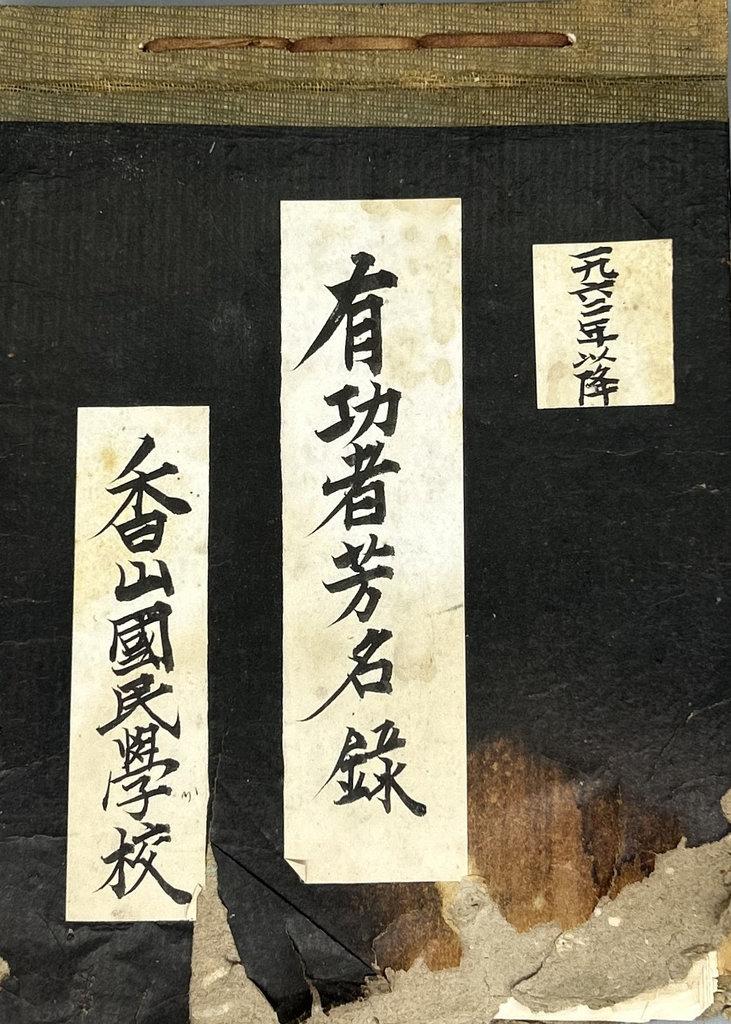 一九六二年以降
有功者芳名錄
香山國民學校